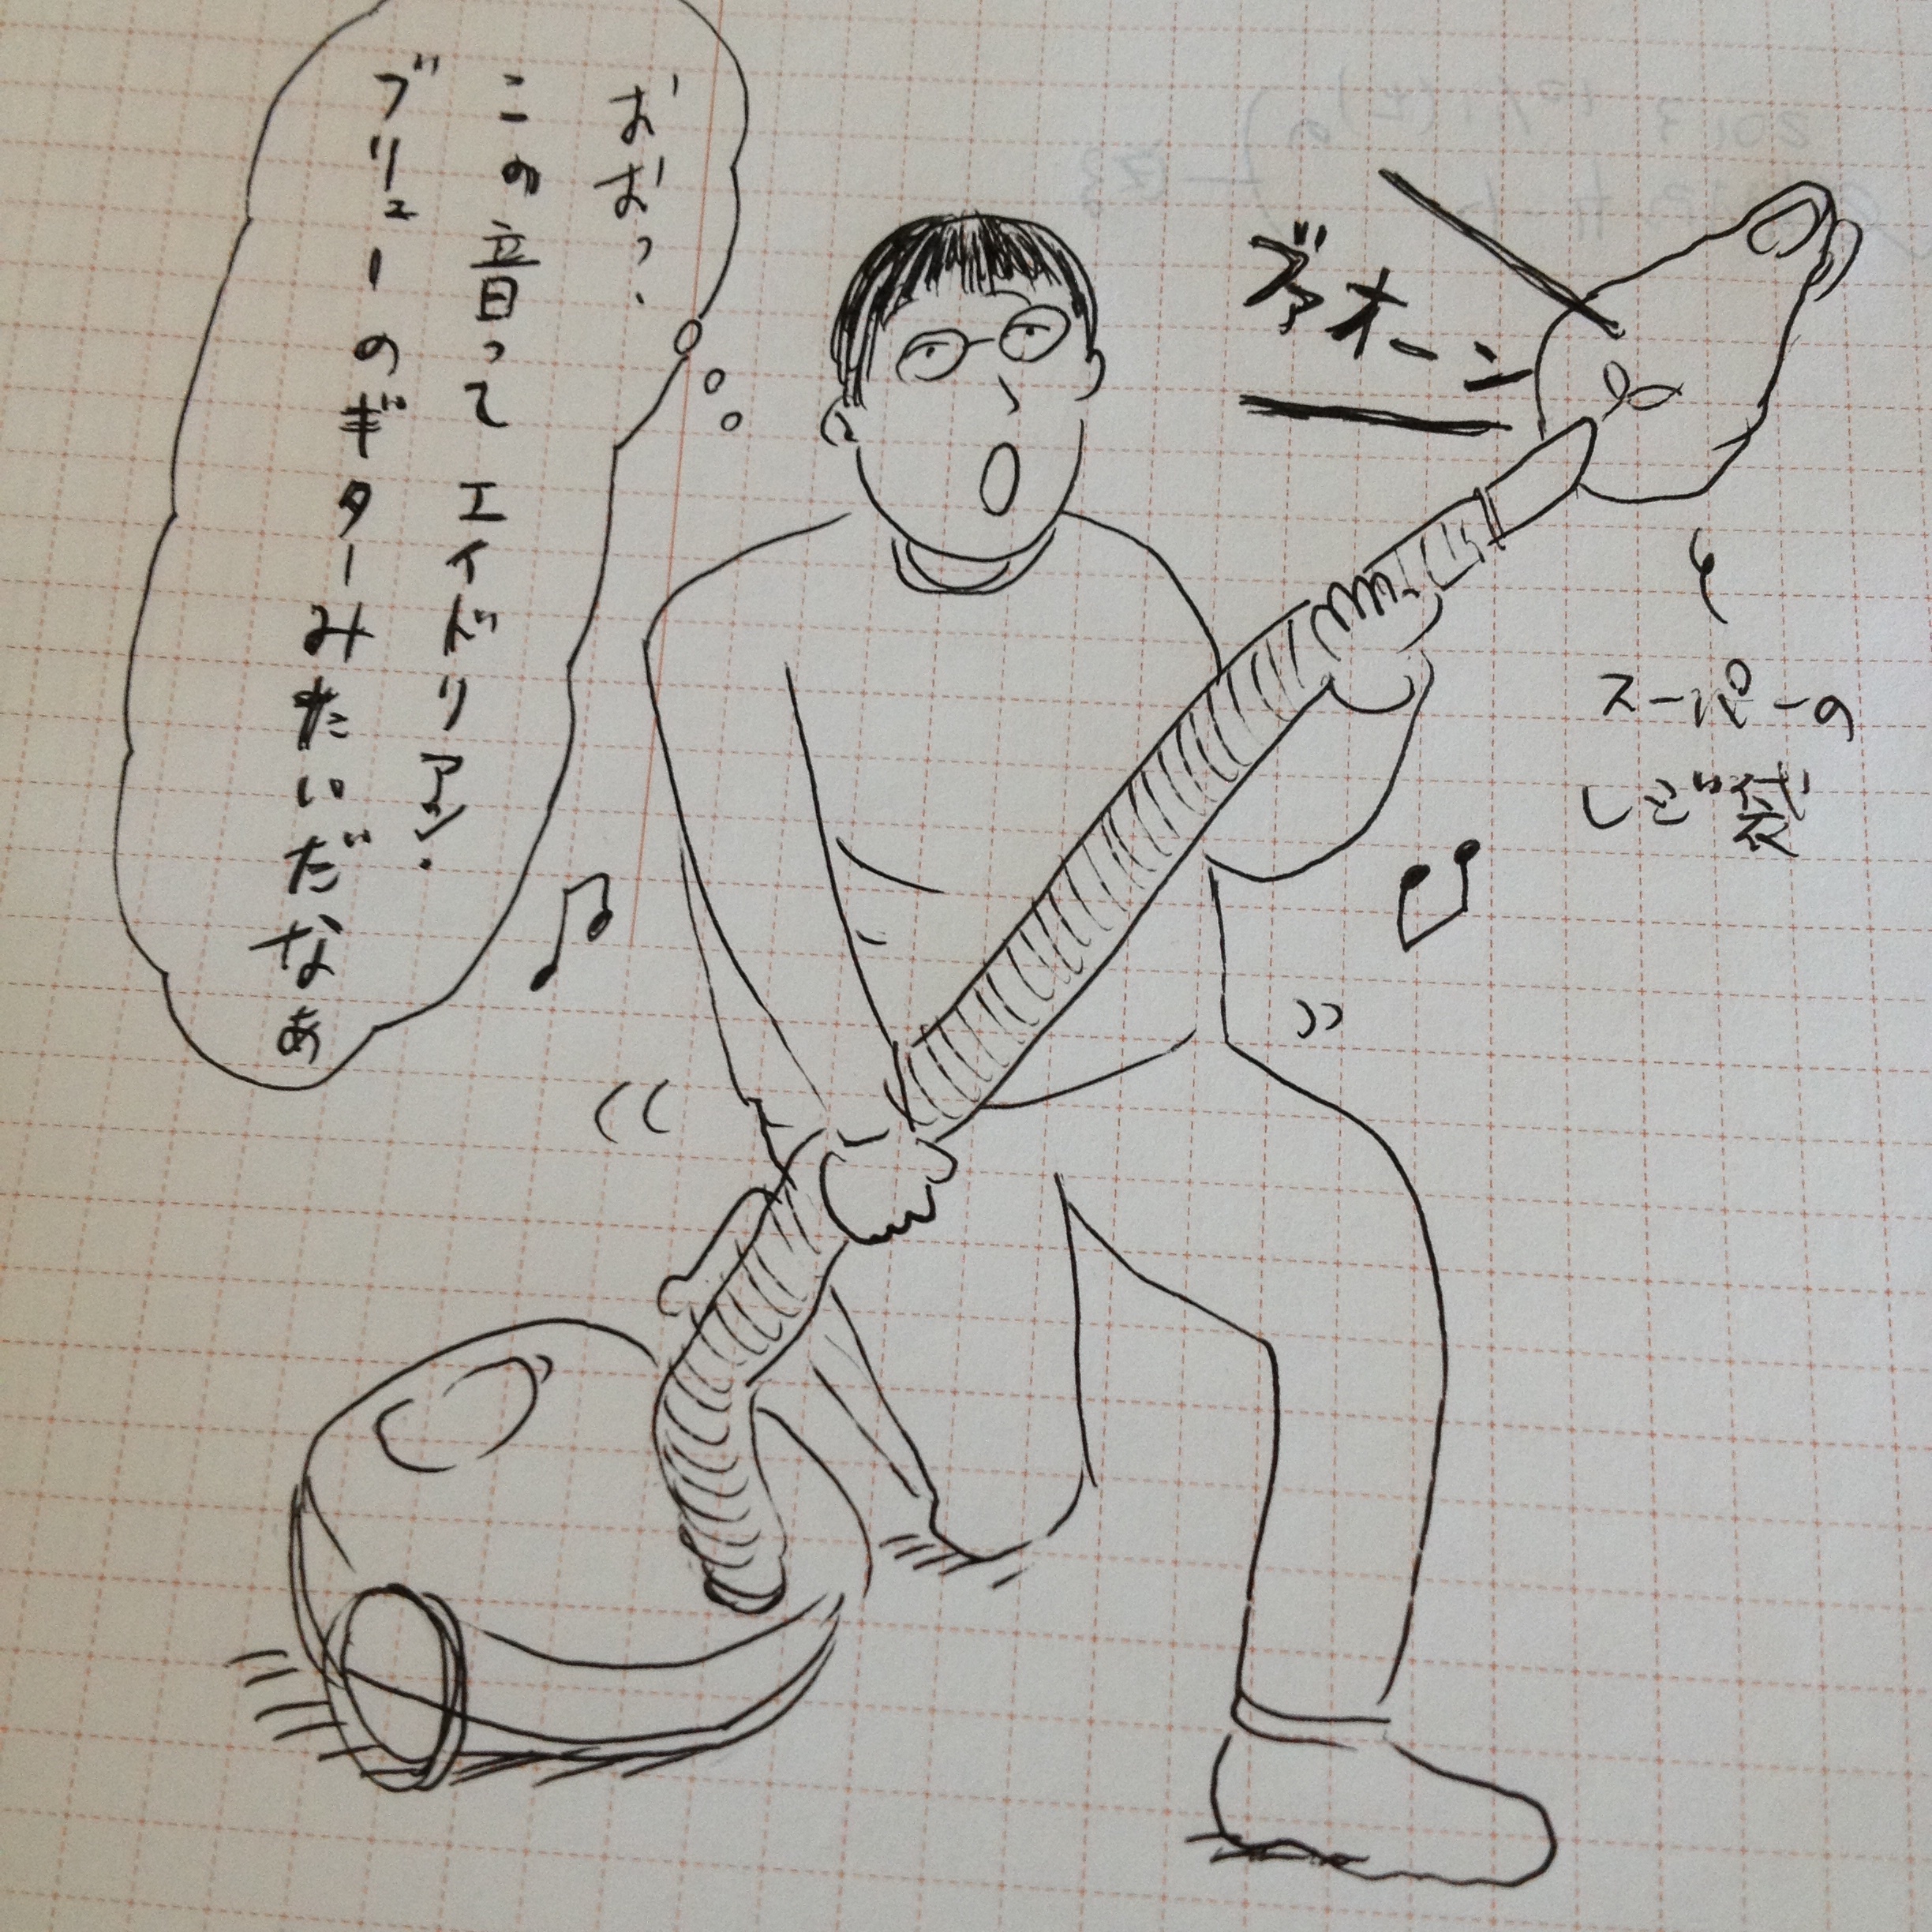 おお?、
この音って エイドリアン・
ブリューのギターみたいだなあ
ヴァオーン
スーパーの
レジ袋